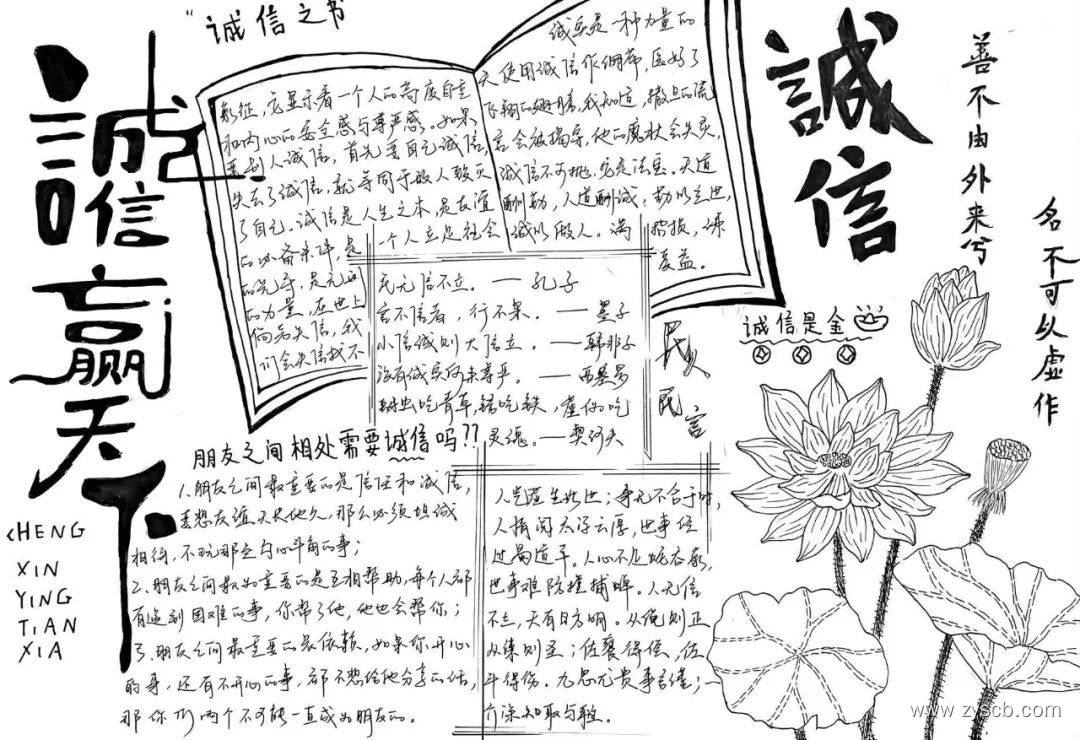 诚信赢天下
CHENG
XIN
YING
TiAN
XiA
"诚信之书
象征，它显示着一个人的高度自重
和内心的安全感与尊严感。如果
要别人诚信，首先要自己诚信，
失去了诚信，就等同于敌人毁灭
了自己。诚信是人生之本，是友谊
的必备条件，是
的力量，在世上
倘若失信，我
们会失信找不
诚实是一种力量的
天使用诚信作绷带，医好了
飞翔的翅膀，我知道，撒旦的流
言会被揭穿，他的魔杖会失灵，
诚信不可抛，它是法宝。天道
酬勤，人道酬诚，勤以立世，
一个人立足社会 诚以做人。满招损，谦
受益。
誠信
善不由外来兮
名不可以虚作
诚信是金
民无信不立。——孔子
言不信者，行不果。——墨子
小信诚则大信立。——韩非子
没有诚实何来尊严。——西塞罗
蚜虫吃青草，锈吃铁，虚伪吃
灵魂。——契诃夫
民言
朋友之间相处需要诚信吗??
1.朋友之间最重要的是信任和诚信，
要想友谊天长地久，那么必须坦诚
相待，不玩那些勾心斗角的事；
2.朋友之间最为重要的是互相帮助，每个人都
有遇到困难的事，你帮了他，他也会帮你；
3.朋友之间最重要的是依赖，如果你开心
的事，还有不开心的事，都不想给他分享的话，
那你们两个不可能一直成为朋友的。
过
人心不足
世事难防
人无信
不立，天有日方明。从俭则正
www.zyscb.com